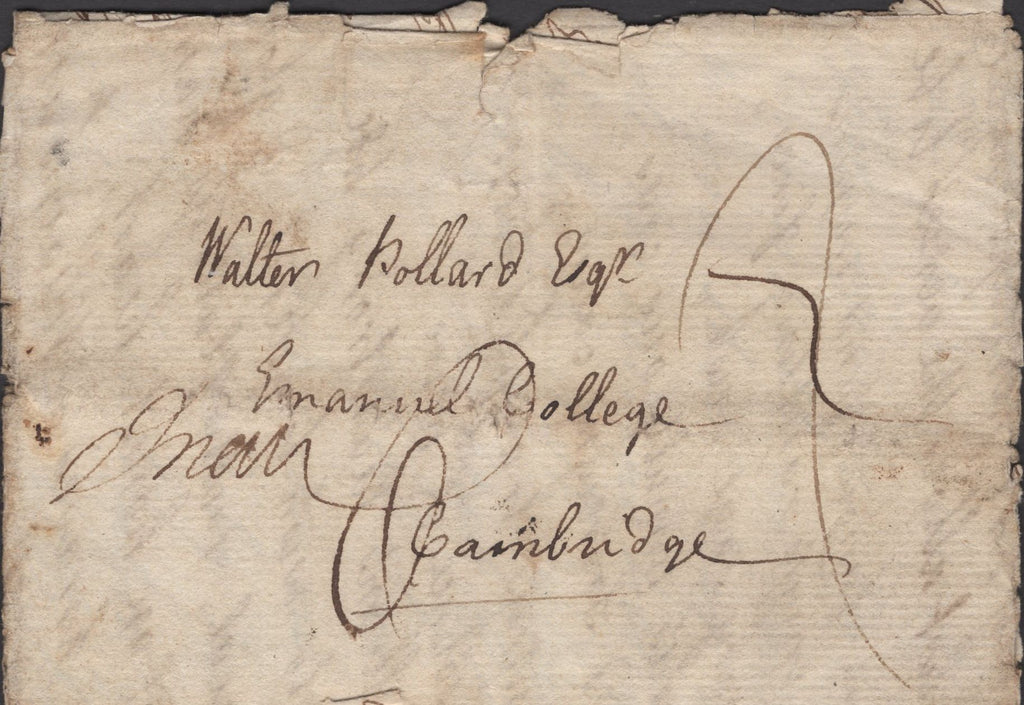 Walter Pollard Esqr
Emanuel College
Cambridge